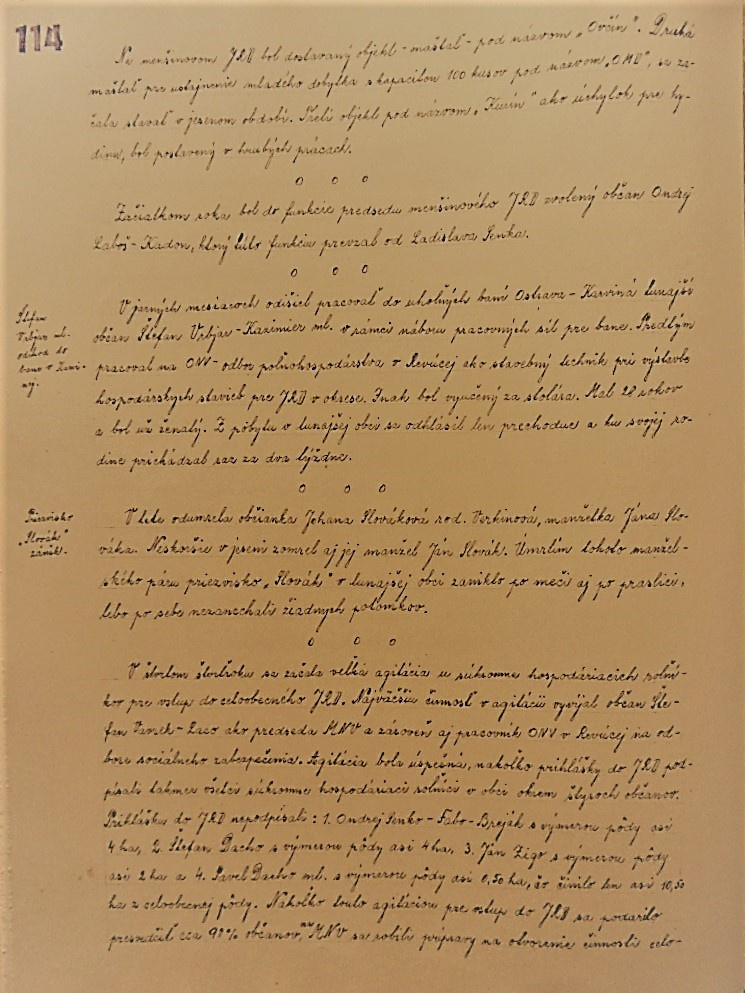 114
Na menšinovom JRD bol dostavaný objekt - maštaľ - pod názvom "Ovčín". Druhá
maštaľ pre ustajnenie mladého dobytka s kapacitou 100 kusov pod názvom "OMD", sa za-
čala stavať v jesenom období. Tretí objekt pod názvom "Kurín" ako úchylok pre hy-
dinu, bol postavený v hrubých prácach.
o o o
Začiatkom roka bol do funkcie predsedu menšinového JRD zvolený občan Ondrej
Laboš - Kadon, ktorý túto funkciu prevzal od Ladislava Senka.
o o o
Štefan
Vrbjar ml.
odchod do
bane v Karvi-
nej.
V jarných mesiacoch odišiel pracovať do uhoľných baní Ostrava - Karviná tunajší
občan Štefan Vrbjar - Kazimier ml. v rámci náboru pracovných síl pre bane. Predtým
pracoval na ONV - odbor poľnohospodárstva v Revúcej ako stavebný technik pri výstavbe
hospodárskych stavieb pre JRD v okrese. Inak bol vyučený za stolára. Mal 28 rokov
a bol už ženatý. Z pobytu v tunajšej obci sa odhlásil len prechodne a ku svojej ro-
dine prichádzal raz za dva týždne.
o o o
Priezvisko
"Slovák"
zánik.
V lete odumrela občianka Johana Slováková rod. Verkinová, manželka Jána Slo-
váka. Neskoršie v jeseni zomrel aj jej manžel Ján Slovák. Úmrtím tohoto manžel-
ského páru priezvisko "Slovák" v tunajšej obci zaniklo po meči aj po praslici,
lebo po sebe nezanechali žiadnych potomkov.
o o o
V štvrtom štvrťroku sa začala veľká agitácia u súkromne hospodáriacich roľní-
kov pre vstup do celoobecného JRD. Najväčšiu činnosť v agitácii vyvíjal občan Šte-
fan Vanek - Zaco ako predseda MNV a zároveň aj pracovník ONV v Revúcej na od-
bore sociálneho zabezpečenia. Agitácia bola úspešná, nakoľko prihlášky do JRD pod-
písali takmer všetci súkromne hospodáriaci roľníci v obci okrem štyroch občanov.
Prihlášku do JRD nepodpísali: 1. Ondrej Senko - Fabo - Breják s výmerou pôdy asi
4 ha, 2. Štefan Dacho s výmerou pôdy asi 4 ha, 3. Ján Žigo s výmerou pôdy
asi 2 ha a 4. Pavel Dacho ml. s výmerou pôdy asi 0,50 ha, čo činilo len asi 10,50
ha z celoobecnej pôdy. Nakoľko touto agitáciou pre vstup do JRD sa podarilo
presvedčiť cca 98% občanov, na MNV sa robili prípravy na otvorenie činnosti celo-